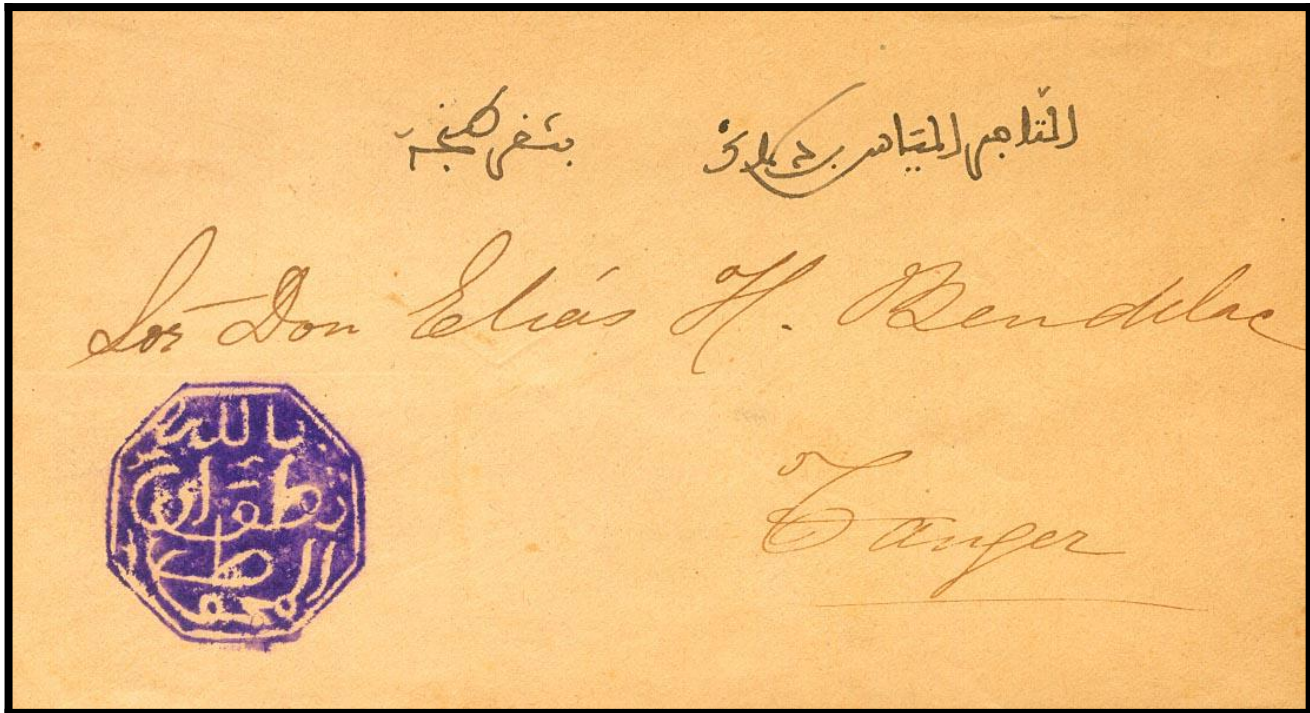 التاجر بثغر طنجة
Sor Don Elías H. Bendelac
Tanger
بالله
تطوان